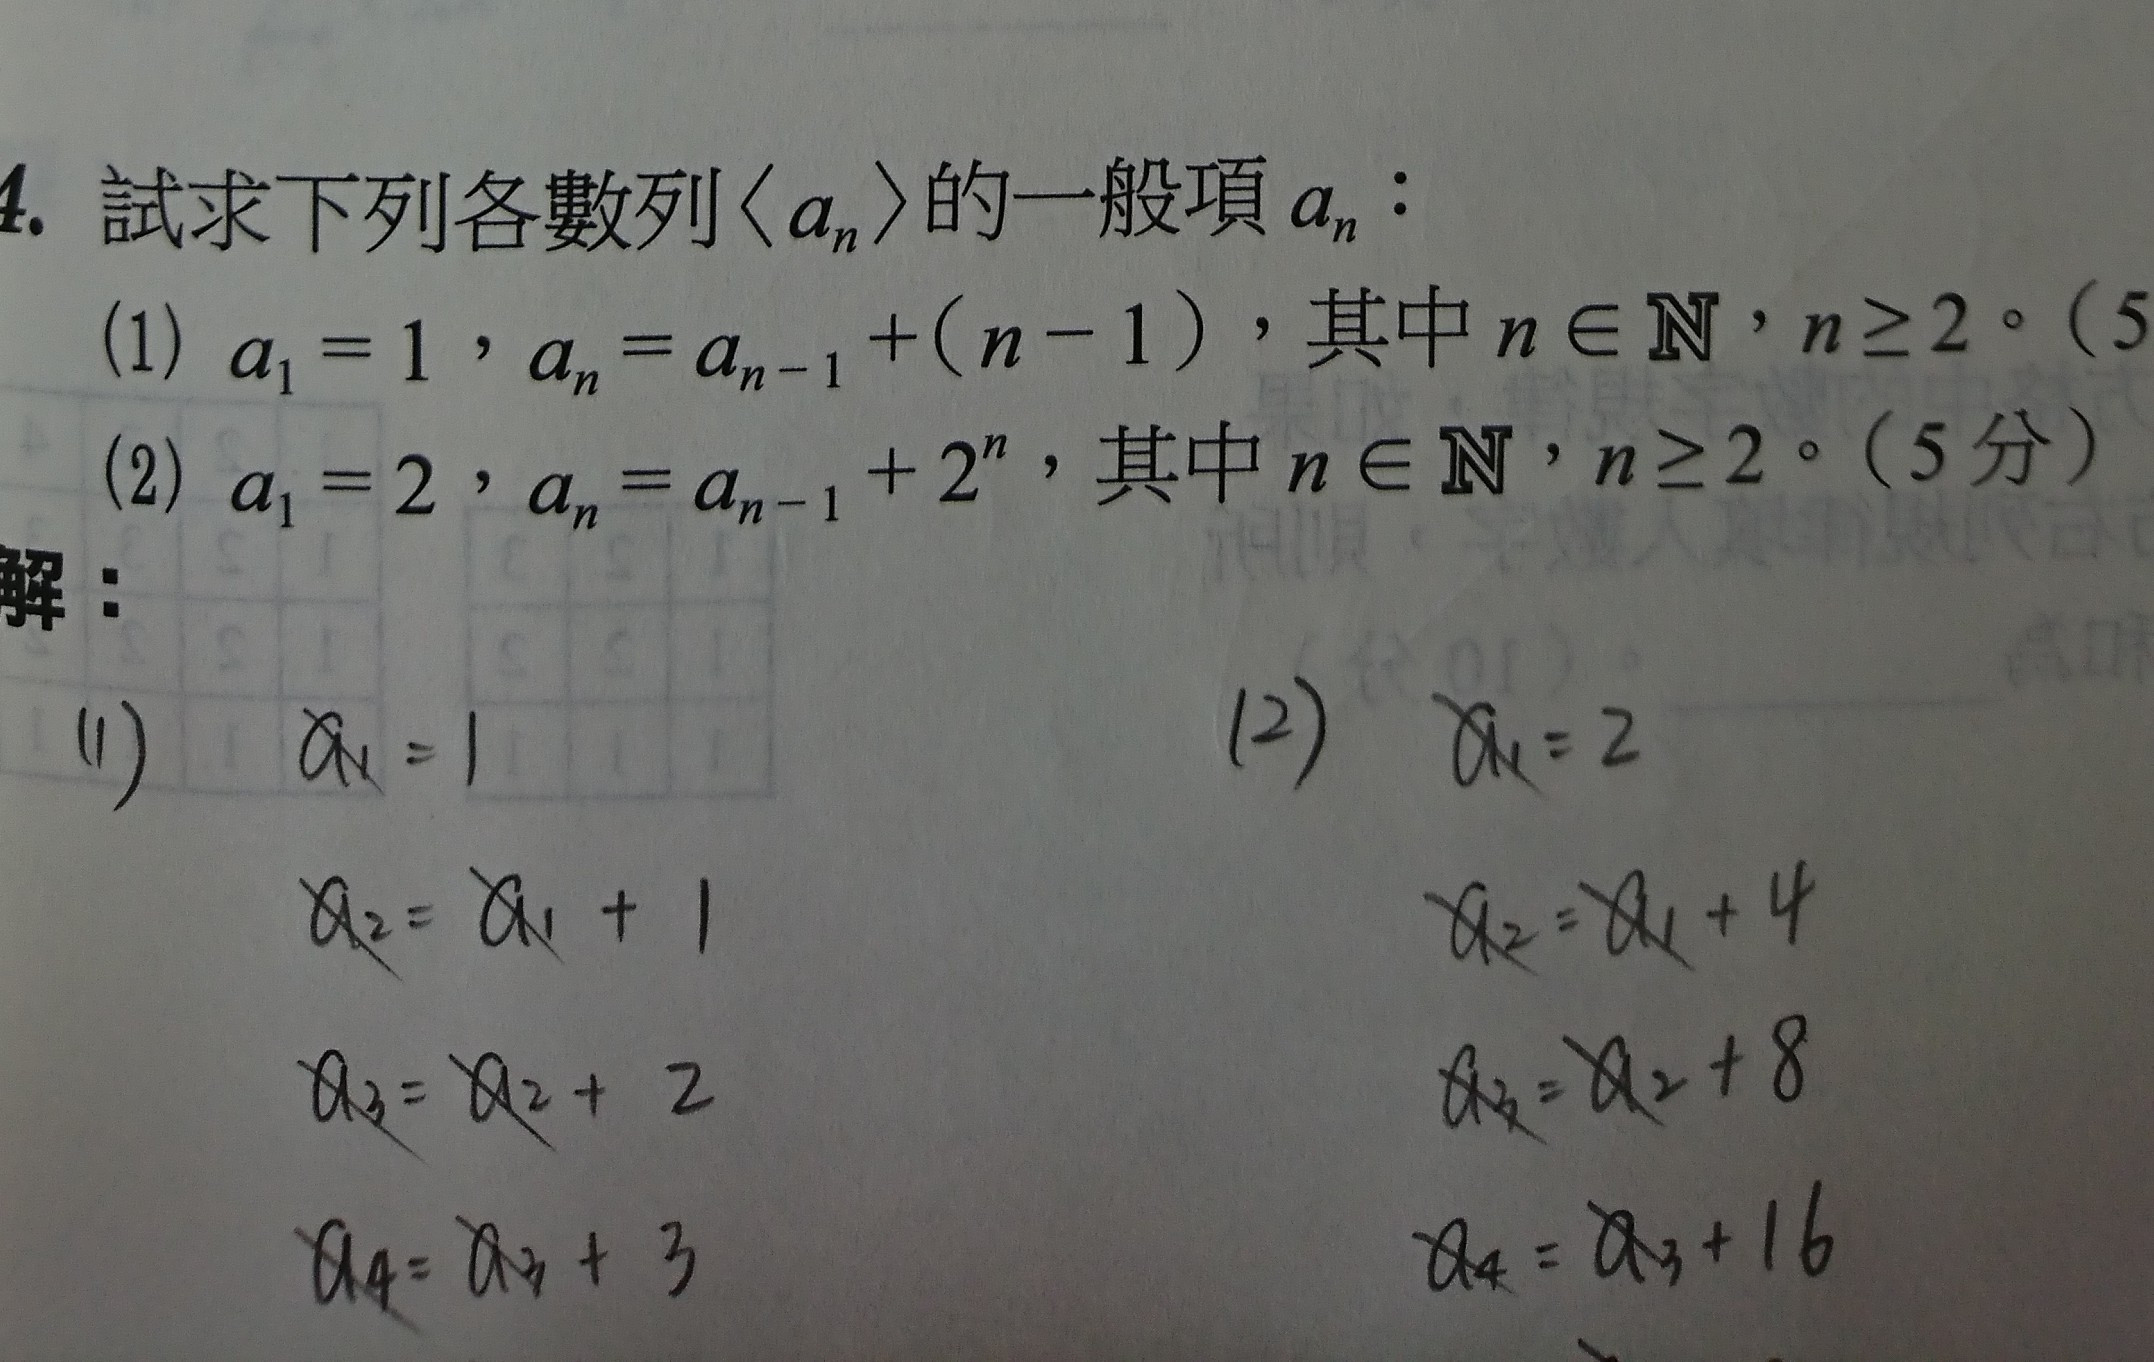 4. 試求下列各數列〈aₙ〉的一般項 aₙ：
(1) a₁ = 1，aₙ = aₙ₋₁ +（n − 1），其中 n ∈ ℕ，n ≥ 2。（5
(2) a₁ = 2，aₙ = aₙ₋₁ + 2ⁿ，其中 n ∈ ℕ，n ≥ 2。（5 分）
解：
(1) a₁ = 1
a₂ = a₁ + 1
a₃ = a₂ + 2
a₄ = a₃ + 3
(2) a₁ = 2
a₂ = a₁ + 4
a₃ = a₂ + 8
a₄ = a₃ + 16